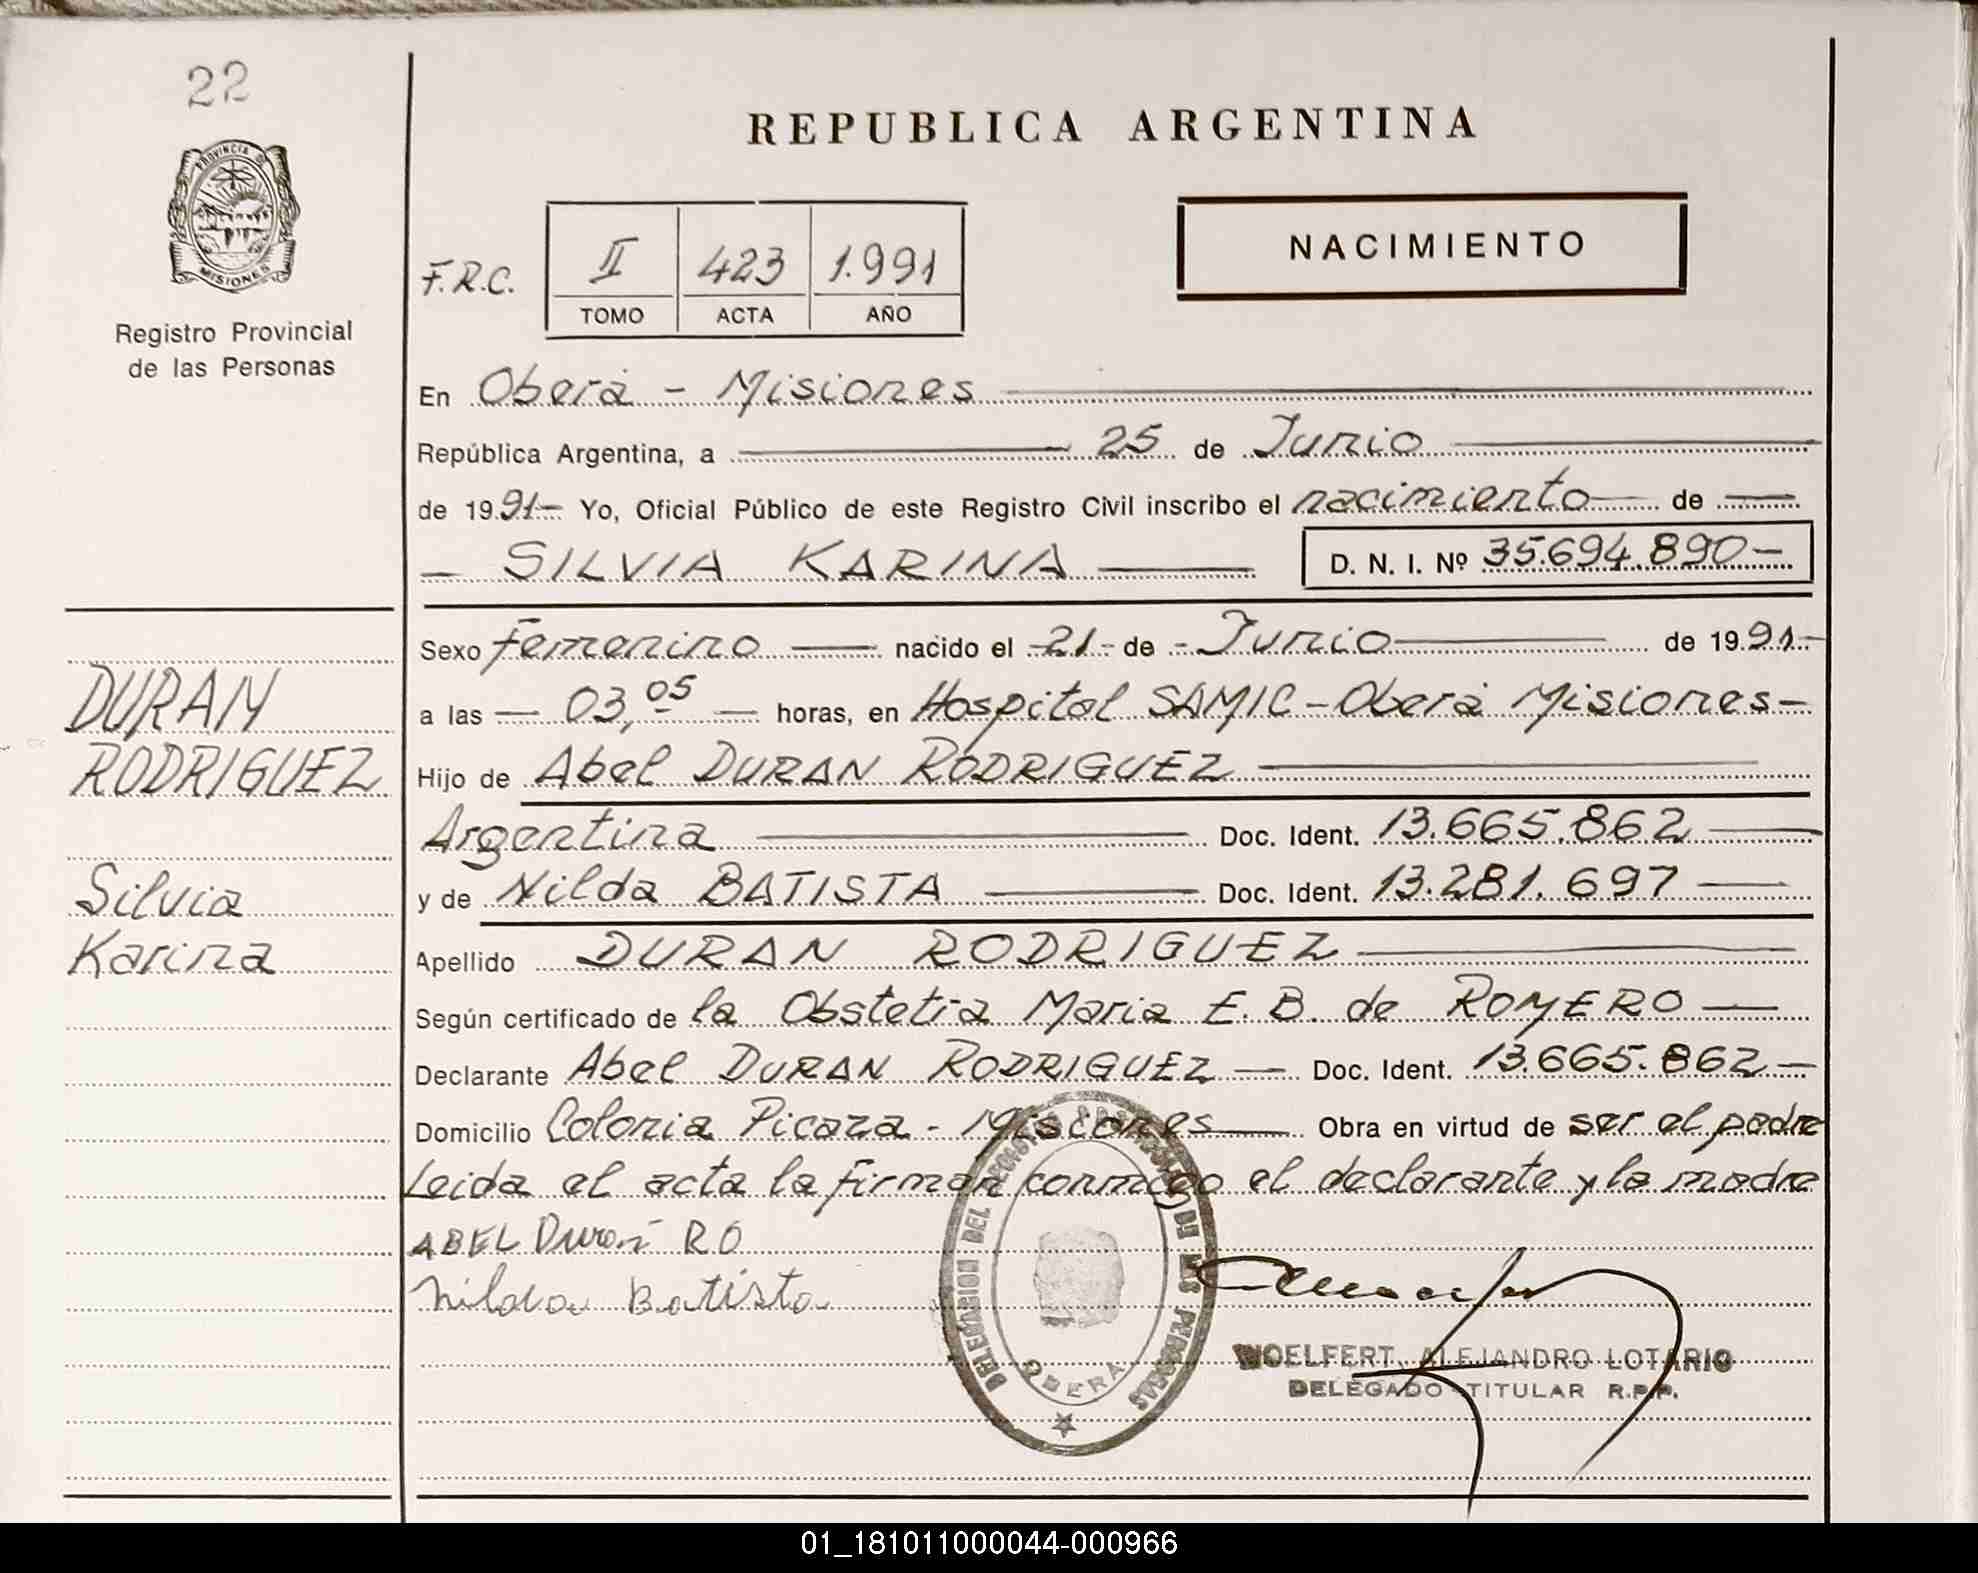 22
REPUBLICA ARGENTINA
PROVINCIA DE
MISIONES
Registro Provincial
de las Personas
F.R.C.
II 423 1.991
TOMO ACTA AÑO
NACIMIENTO
En Oberá - Misiones
República Argentina, a 25 de Junio
de 1991- Yo, Oficial Público de este Registro Civil inscribo el nacimiento de
- SILVIA KARINA
D. N. I. Nº 35.694.890-
Sexo Femenino nacido el -21- de - Junio de 1991-
a las - 03,05 - horas, en Hospital SAMIC - Oberá Misiones-
Hijo de Abel DURAN RODRIGUEZ
Argentina Doc. Ident. 13.665.862
y de Nilda BATISTA Doc. Ident. 13.281.697
Apellido DURAN RODRIGUEZ
Según certificado de la Obstetia Maria E. B. de ROMERO
Declarante Abel DURAN RODRIGUEZ - Doc. Ident. 13.665.862-
Domicilio Colonia Picaza - Misiones Obra en virtud de ser el padre
Leida el acta la firman conmigo el declarante y la madre
ABEL Duran RO
Nilda Batista
DURAN
RODRIGUEZ
Silvia
Karina
DELEGACION DEL REGISTRO PROVINCIAL DE LAS PERSONAS
OBERA
WOELFERT, ALEJANDRO LOTARIO
DELEGADO TITULAR R.P.P.
01_181011000044-000966